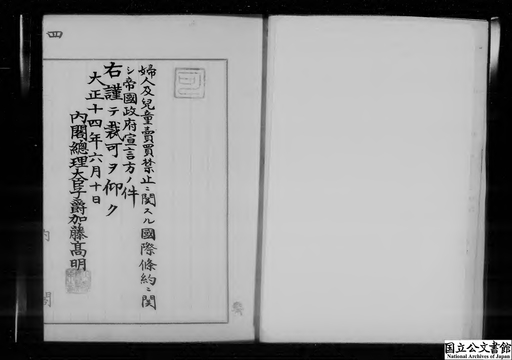 婦人及兒童賣買禁止ニ関スル國際條約ニ関
シ帝國政府宣言方ノ件
右謹テ裁可ヲ仰ク
大正十四年六月十日
内閣總理大臣子爵加藤高明
四
内閣
国立公文書館
National Archives of Japan